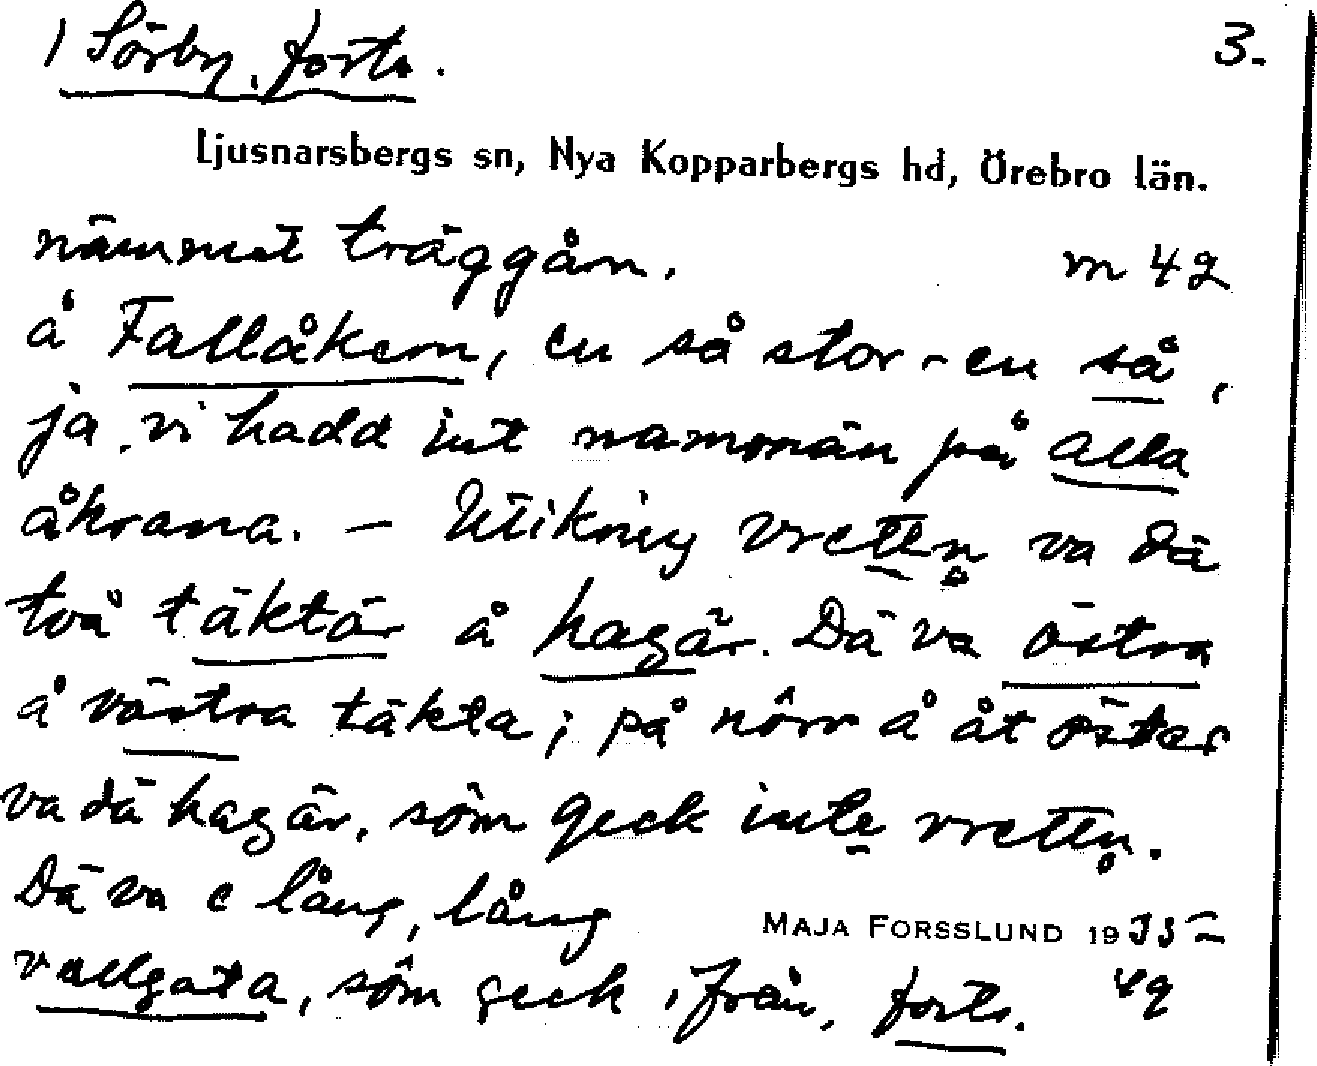 1 Sörby, forts. 3.
Ljusnarsbergs sn, Nya Kopparbergs hd, Örebro län.
nämmst träggårn. m 42
å Fallåkern, en så stor - en så,
ja, vi hadd int namnän på alla
åkrana. — Utikring vrettn̥ va dä
två täktär å hagär. Dä va östra
å västra täkta; på nôrr å åt öster
va dä hagär, sôm geck inte vrettn̥.
Dä va e lång, lång
vallgata, sôm geck ifrån, forts.
MAJA FORSSLUND 1935-
49